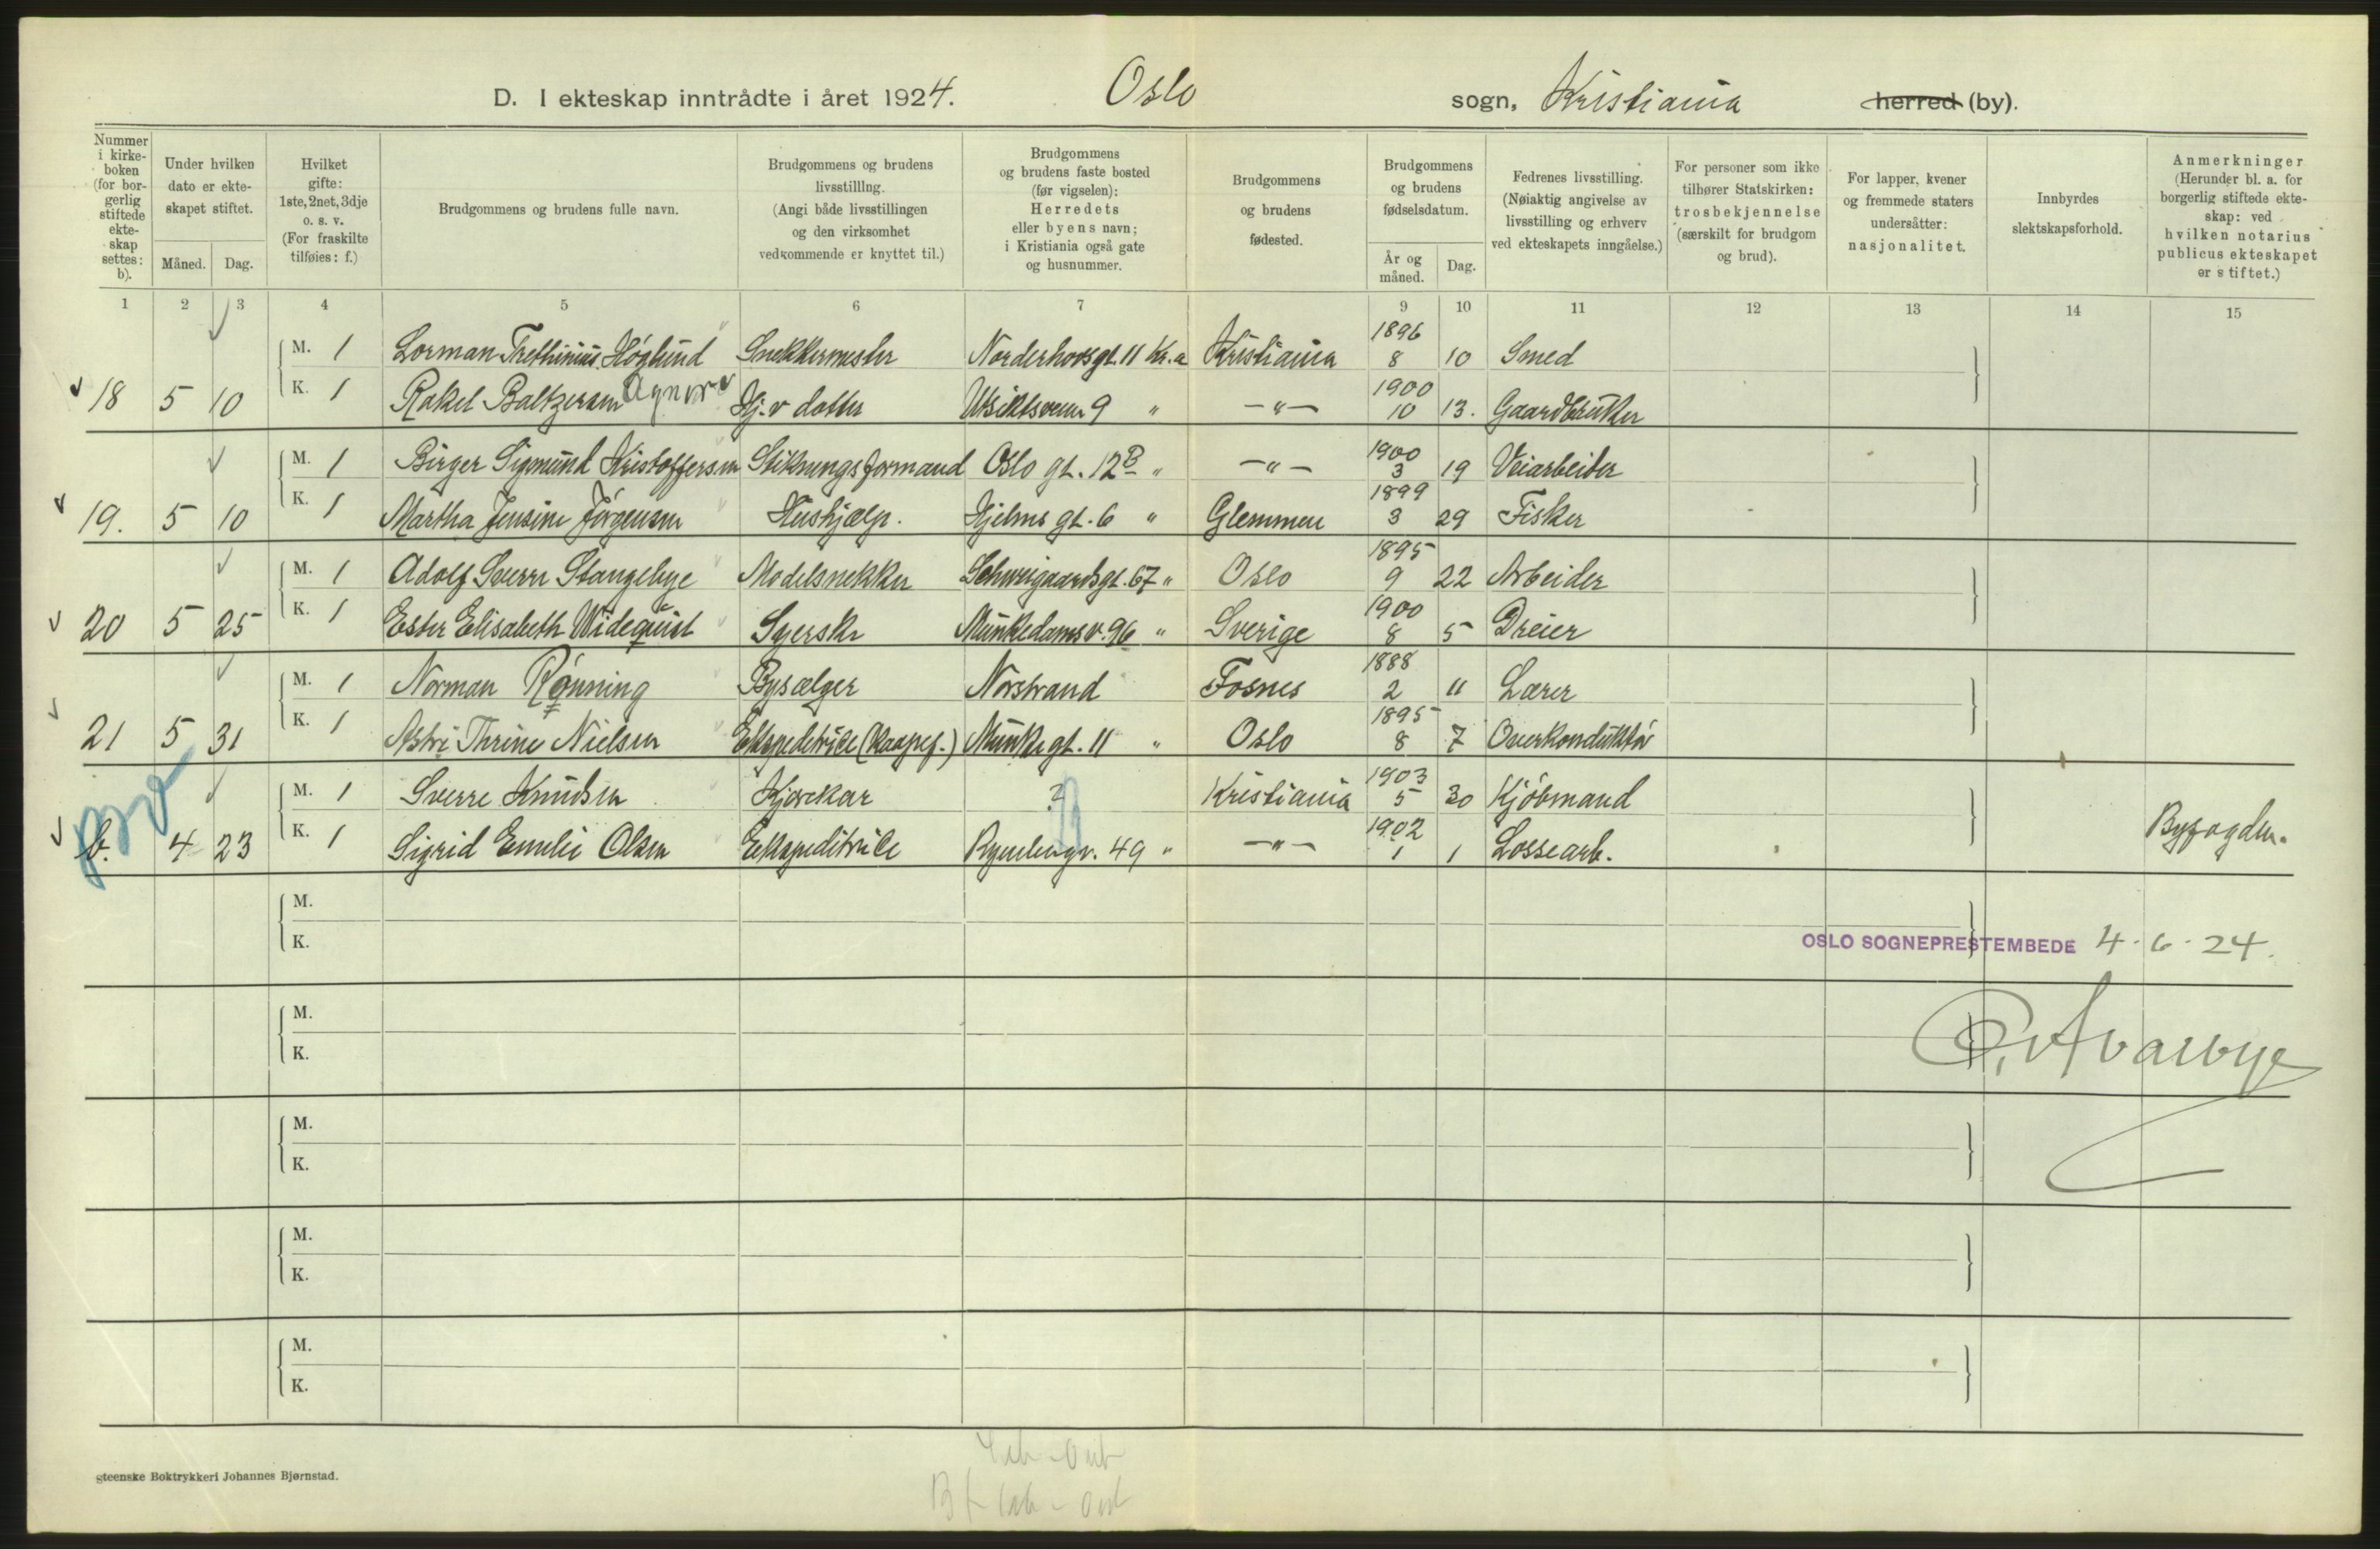 D. I ekteskap inntrådte i året 1924. Oslo sogn, Kristiania herred (by).
Nummer i kirke-boken (for bor-gerlig stiftede ekte-skap settes: b).
Under hvilken dato er ekte-skapet stiftet.
Måned. Dag.
Hvilket gifte: 1ste, 2net, 3dje o. s. v. (For fraskilte tilføies: f.)
Brudgommens og brudens fulle navn.
Brudgommens og brudens livsstilling. (Angi både livsstillingen og den virksomhet vedkommende er knyttet til.)
Brudgommens og brudens faste bosted (før vigselen): Herredets eller byens navn; i Kristiania også gate og husnummer.
Brudgommens og brudens fødested.
Brudgommens og brudens fødselsdatum.
År og måned. Dag.
Fedrenes livsstilling. (Nøiaktig angivelse av livsstilling og erhverv ved ekteskapets inngåelse.)
For personer som ikke tilhører Statskirken: trosbekjennelse (særskilt for brudgom og brud).
For lapper, kvener og fremmede staters undersåtter: nasjonalitet.
Innbyrdes slektskapsforhold.
Anmerkninger (Herunder bl. a. for borgerlig stiftede ekte-skap: ved hvilken notarius publicus ekteskapet er stiftet.)
1 2 3 4 5 6 7 8 9 10 11 12 13 14 15
M. 1 Lorman Høglund Snekkermester Norderhovsgt. 11 Kr.a Kristiania 1896 8 10 Smed
18 5 10 K. 1 Rakel Baltzersen Hj.v datter Utsiktsveien 9 " —"— 1900 10 13. Gaardbruker
M. 1 Birger Sigmund Kristoffersen Stikningsformand Oslo gt. 12B " —"— 1900 3 19 Veiarbeider
19. 5 10 K. 1 Martha Jensine Jørgensen Hushjælp. Hjelms gt. 6 " Glemmen 1899 3 29 Fisker
M. 1 Adolf Sverre Stangebye Modelsnekker Schweigaardsgt. 67 " Oslo 1895 9 22 Arbeider
20 5 25 K. 1 Ester Elisabeth Widequist Syerske Munkedamsv. 96 " Sverige 1900 8 5 Dreier
M. 1 Norman Rønning Bysælger Norstrand Fosnes 1888 2 11 Lærer
21 5 31 K. 1 Astri Thrine Nielsen Ekspeditrice (Kaapef.) Munkegt. 11 " Oslo 1895 8 7 Overkonduktør
M. 1 Sverre Knudsen ? Kristiania 1903 5 30 Kjøbmand
b. 4 23 K. 1 Sigrid Emilie Olsen Ekspeditrice Ryenbergv. 49 " —"— 1902 1 1 Lossearb. Byfogden.
M.
K.
OSLO SOGNEPRESTEMBEDE 4-6-24.
M.
K.
M.
K.
M.
K.
M.
K.
Steenske Boktrykkeri Johannes Bjørnstad.